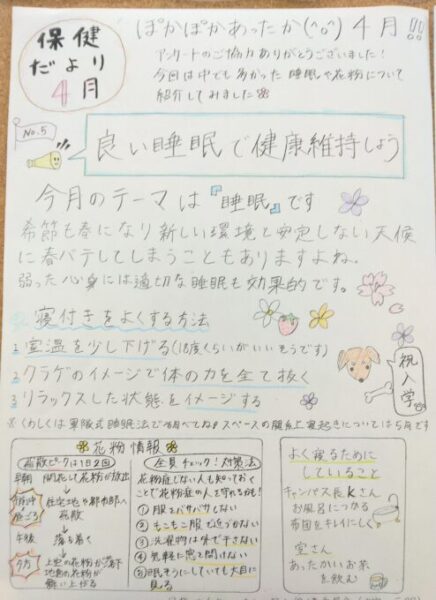 保健
だより
4月
ぽかぽかあったか(^o^) 4月!!
アンケートのご協力ありがとうございました!
今回は中でも多かった 睡眠や花粉について
紹介してみました
No.5
良い睡眠で健康維持しよう
今月のテーマは『睡眠』です
季節も春になり新しい環境と安定しない天候
に春バテしてしまうこともありますよね。
弱った心身には適切な睡眠も効果的です。
寝付きをよくする方法
1.室温を少し下げる(18度くらいがいいそうです)
2.クラゲのイメージで体の力を全て抜く
3.リラックスした状態をイメージする
祝入学
※くわしくは軍隊式睡眠法で調べてね♪スペースの関係上寝起きについては5月です
花粉情報
飛散ピークは1日2回
早朝 開花し花粉が放出
住宅地や都市部へ
飛散
午後 落ち着く
夕方 上空の花粉が落下
地面の花粉が
舞い上がる
全員チェック!対策法
花粉症じゃない人も知っておく
ことで花粉症の人を守れるかも!
①服はバサバサしない
②もこもこ服で近づかない
③洗濯物は外で干さない
④気軽に窓を開けない
⑤眠そうにしていても大目に
見る
よく寝るために
していること
キャンパス長Kさん
お風呂につかる
布団をキレイにしく
室さん
あったかいお茶
を飲む